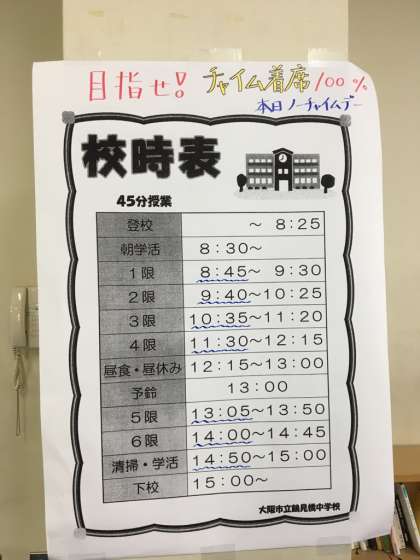 目指せ! チャイム着席100%
本日ノーチャイムデー
校時表
45分授業
登校 ～ 8:25
朝学活 8:30～
1限 8:45～ 9:30
2限 9:40～10:25
3限 10:35～11:20
4限 11:30～12:15
昼食・昼休み 12:15～13:00
予鈴 13:00
5限 13:05～13:50
6限 14:00～14:45
清掃・学活 14:50～15:00
下校 15:00～
大阪市立鶴見橋中学校